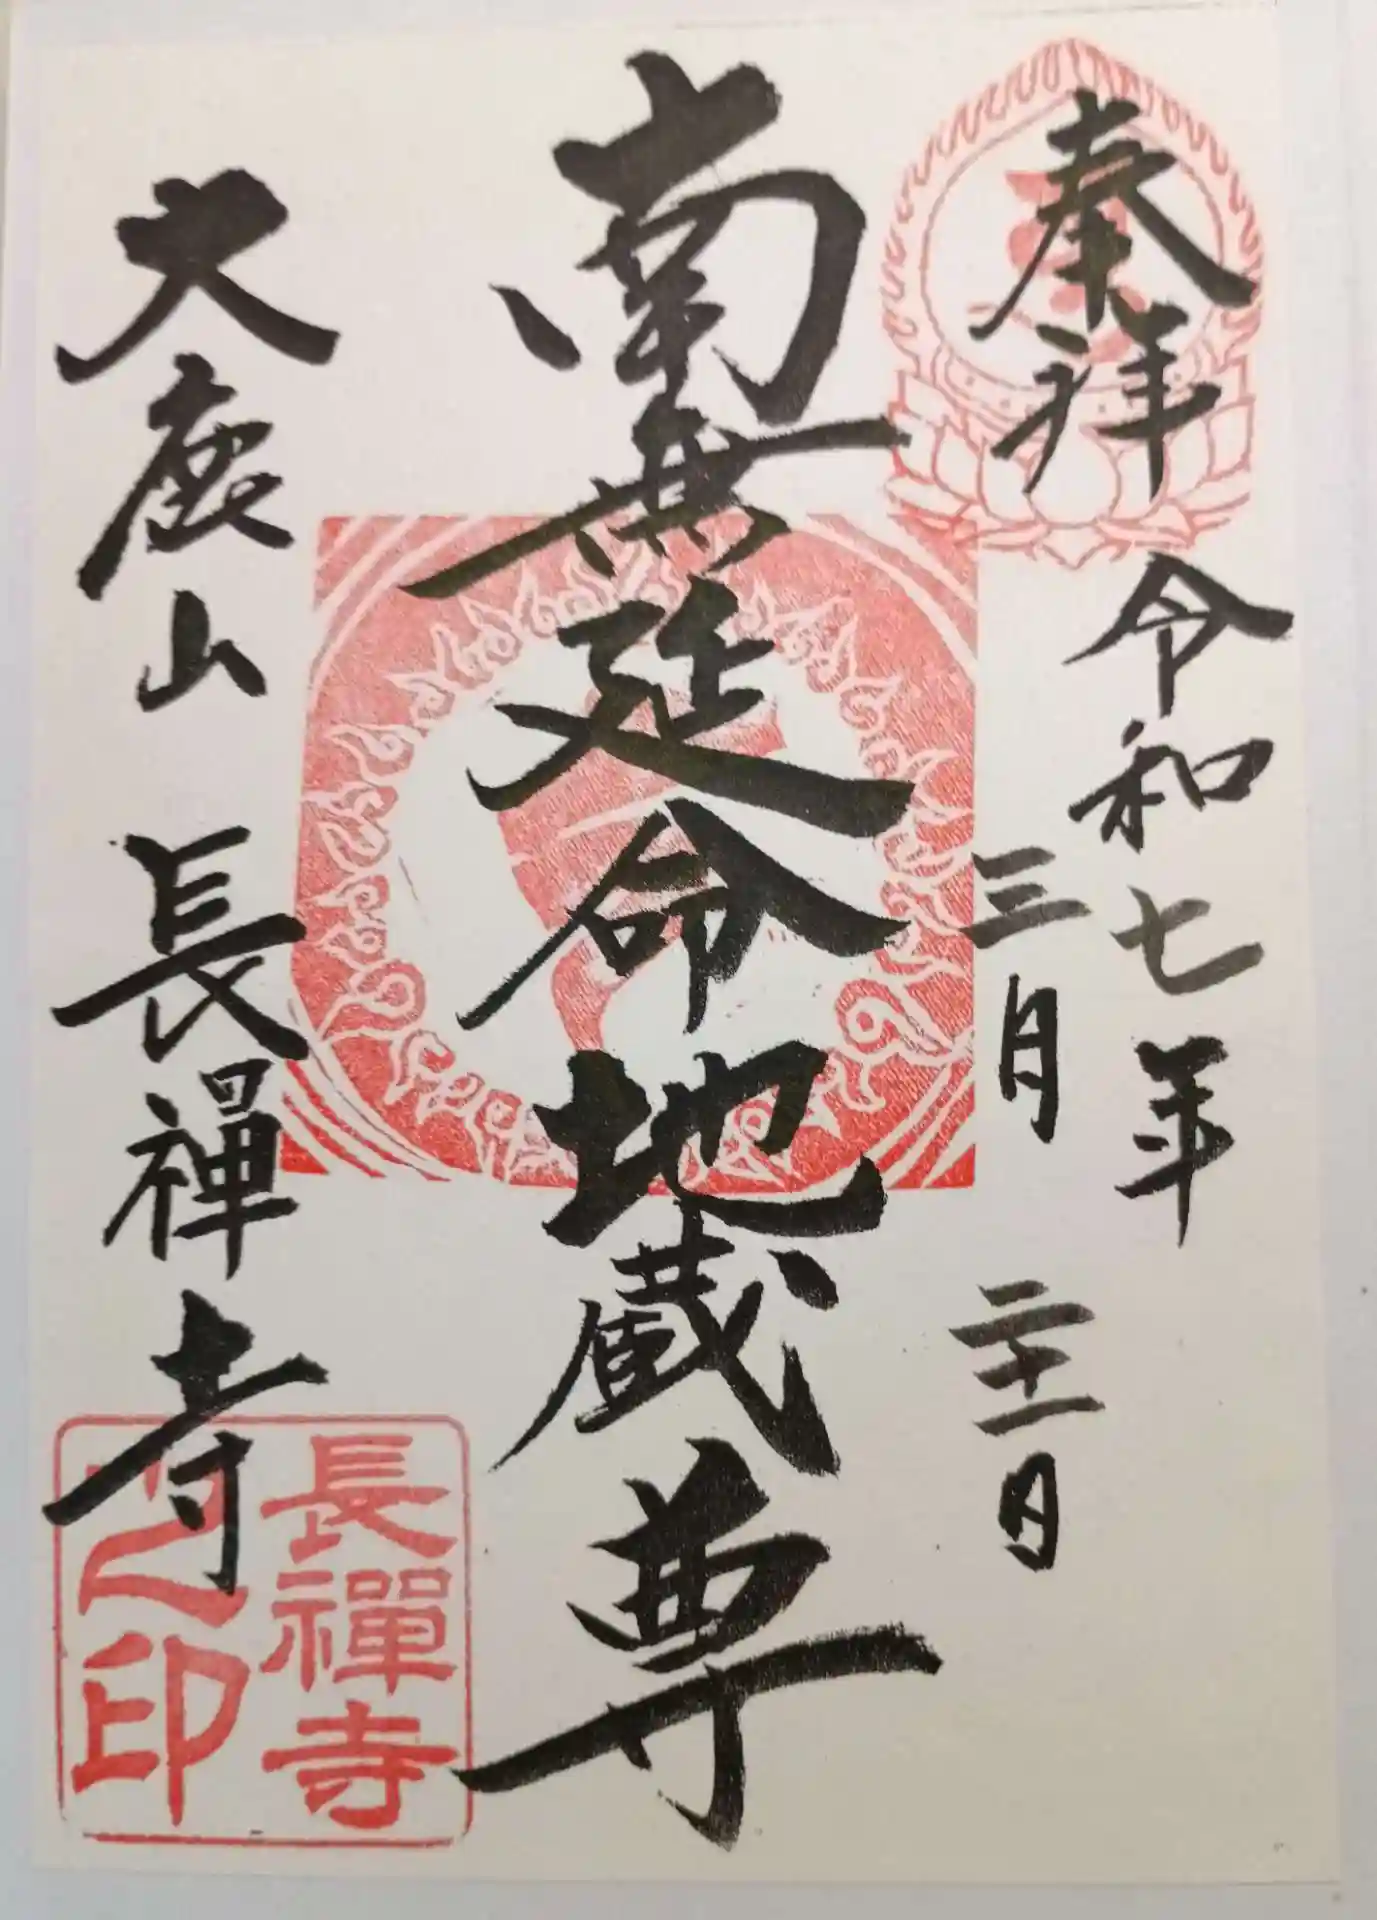 奉拝
令和七年
三月二十一日
南無延命地蔵尊
大鹿山 長禪寺
長禪寺
之印